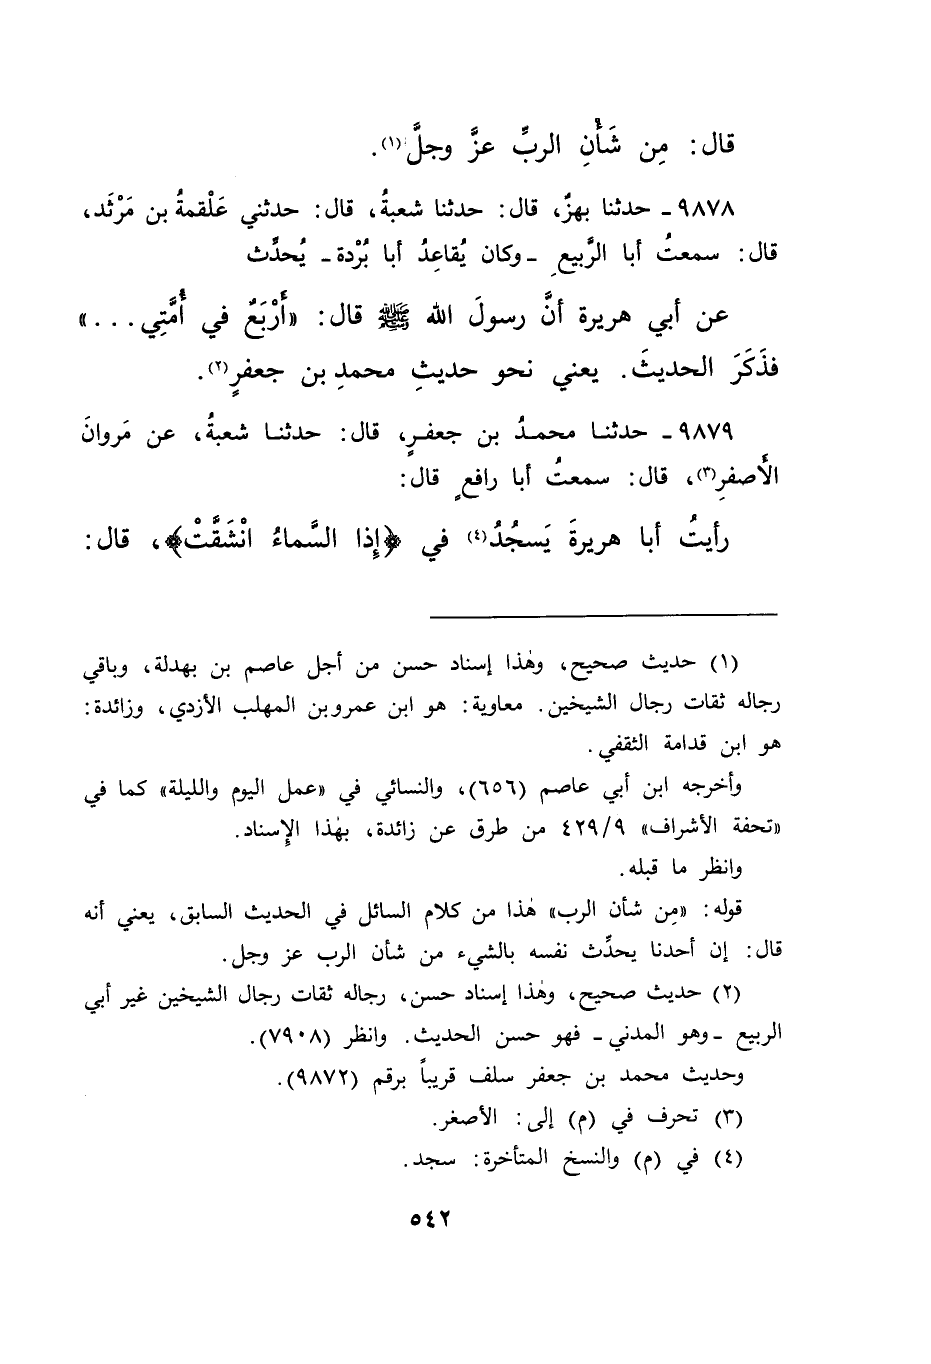 قال: مِن شَأْنِ الربِّ عزَّ وجلَّ(١).
٩٨٧٨ـ حدثنا بهزٌ، قال: حدثنا شعبةُ، قال: حدثني عَلْقمةُ بن مَرْثَد،
قال: سمعتُ أبا الرَّبيعِ ـ وكان يُقاعِدُ أبا بُرْدة ـ يُحدِّث
عن أبي هريرة أنَّ رسولَ الله ﷺ قال: «أَرْبَعٌ في أُمَّتِي...»
فذَكَرَ الحديثَ. يعني نحو حديثِ محمدِ بن جعفرٍ(٢).
٩٨٧٩ـ حدثنا محمدُ بن جعفرٍ، قال: حدثنا شعبةُ، عن مَروانَ
الأَصفرِ(٣)، قال: سمعتُ أبا رافعٍ قال:
رأيتُ أبا هريرةَ يَسجُدُ(٤) في ﴿إِذا السَّماءُ انْشَقَّتْ﴾، قال:
(١) حديث صحيح، وهٰذا إسناد حسن من أجل عاصم بن بهدلة، وباقي
رجاله ثقات رجال الشيخين. معاوية: هو ابن عمرو بن المهلب الأزدي، وزائدة:
هو ابن قدامة الثقفي.
وأخرجه ابن أبي عاصم (٦٥٦)، والنسائي في «عمل اليوم والليلة» كما في
«تحفة الأشراف» ٤٢٩/٩ من طرق عن زائدة، بهٰذا الإِسناد.
وانظر ما قبله.
قوله: «مِن شأن الرب» هٰذا من كلام السائل في الحديث السابق، يعني أنه
قال: إن أحدنا يحدِّث نفسه بالشيء من شأن الرب عز وجل.
(٢) حديث صحيح، وهٰذا إسناد حسن، رجاله ثقات رجال الشيخين غير أبي
الربيع ـ وهو المدني ـ فهو حسن الحديث. وانظر (٧٩٠٨).
وحديث محمد بن جعفر سلف قريباً برقم (٩٨٧٢).
(٣) تحرف في (م) إلى: الأصغر.
(٤) في (م) والنسخ المتأخرة: سجد.
٥٤٢